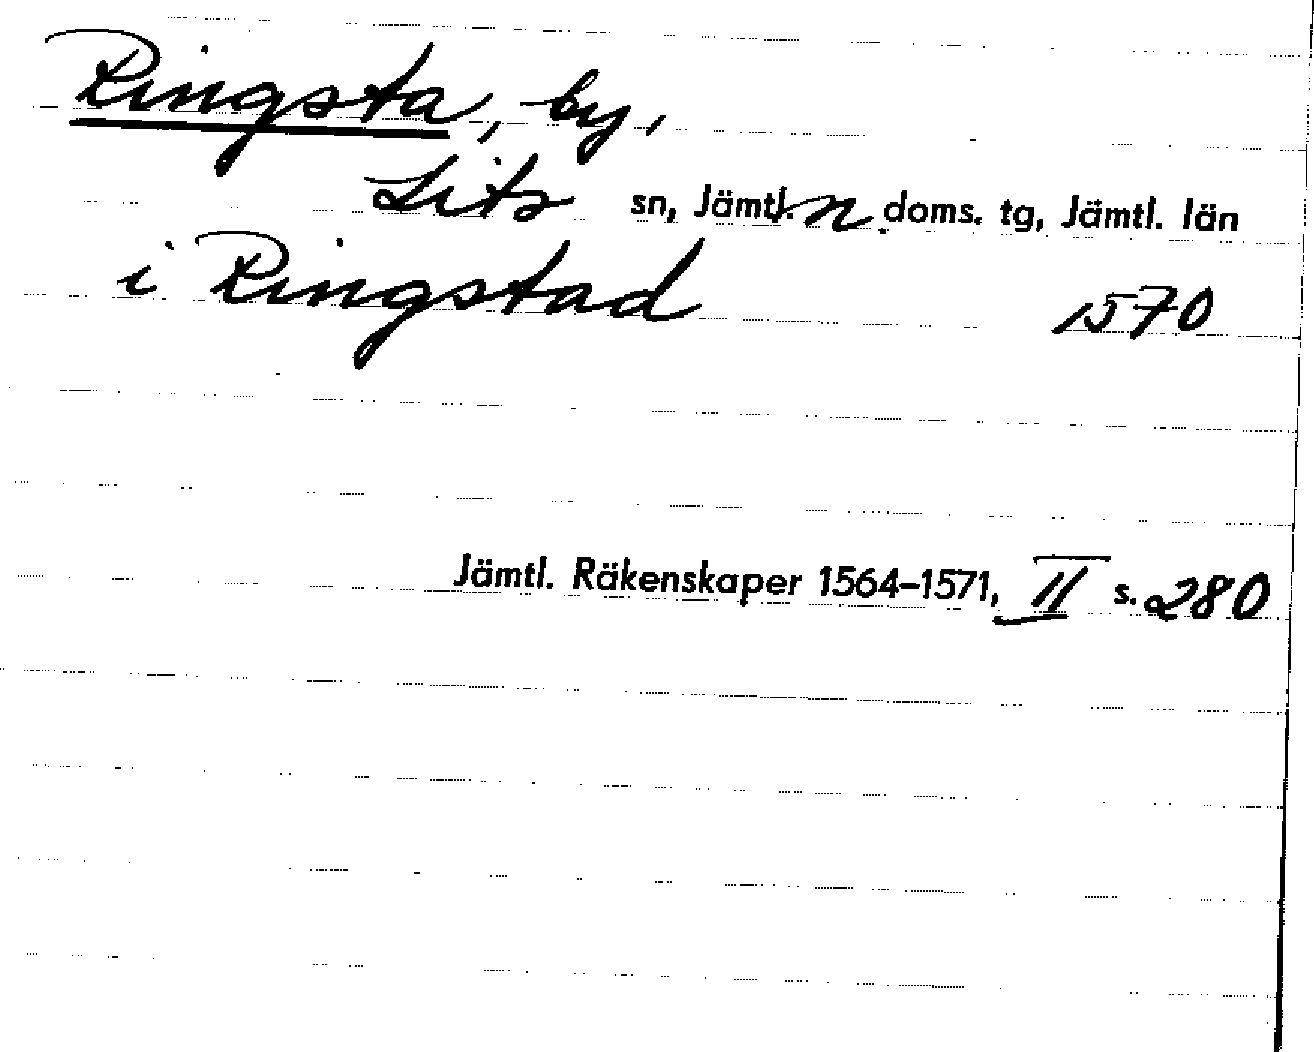 Ringsta, by,
Lits sn, Jämtl. n doms. tg, Jämtl. län
i Ringstad 1570
Jämtl. Räkenskaper 1564–1571, II s. 280